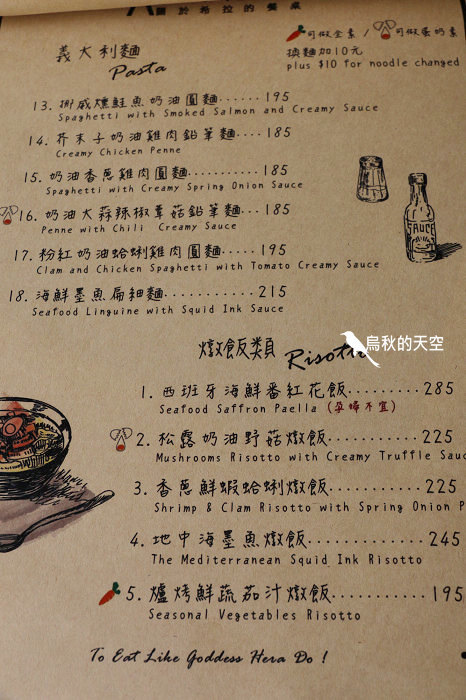 關於希拉的餐桌
可做全素 / 可做蛋奶素
義大利麵
換麵加10元
Pasta
plus $10 for noodle changed
13. 挪威燻鮭魚奶油圓麵······195
Spaghetti with Smoked Salmon and Creamy Sauce
14. 芥末子奶油雞肉鉛筆麵····185
Creamy Chicken Penne
15. 奶油香蔥雞肉圓麵············185
Spaghetti with Creamy Spring Onion Sauce
16. 奶油大蒜辣椒蕈菇鉛筆麵···185
Penne with Chili Creamy Sauce
17. 粉紅奶油蛤蜊雞肉圓麵·····195
Clam and Chicken Spaghetti with Tomato Creamy Sauce
18. 海鮮墨魚扁細麵············215
Seafood Linguine with Squid Ink Sauce
SAUCE
烏秋的天空
燉飯類 Risotto
1. 西班牙海鮮番紅花飯··········285
Seafood Saffron Paella (孕婦不宜)
2. 松露奶油野菇燉飯··········225
Mushrooms Risotto with Creamy Truffle Sauc
3. 香蔥鮮蝦蛤蜊燉飯··········225
Shrimp & Clam Risotto with Spring Onion P
4. 地中海墨魚燉飯·············245
The Mediterranean Squid Ink Risotto
5. 爐烤鮮蔬茄汁燉飯··········195
Seasonal Vegetables Risotto
To Eat Like Goddess Hera Do !